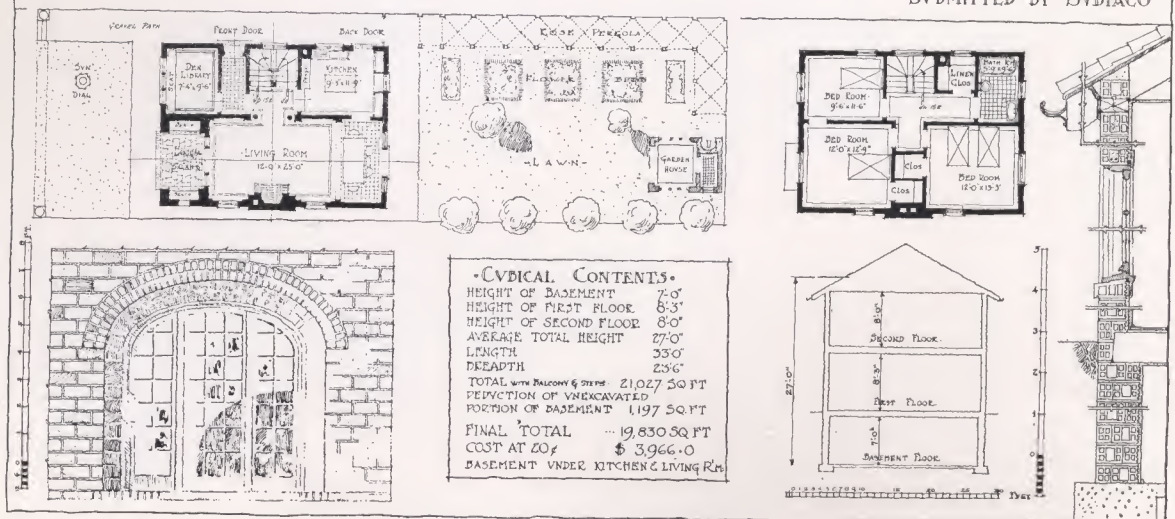 SVBMITTED BY SVBIACO
GRAVEL PATH
FRONT DOOR
BACK DOOR
SVN
DIAL
DEN
LIBRARY
7'-4"x9'-6"
KITCHEN
9'-5"x11'-9"
LIVING ROOM
12'-0"x25'-0"
PERGOLA
FLOWER BEDS
-LAWN-
GARDEN
HOVSE
BED ROOM
9'-6"x11'-6"
LINEN
CLOS
BATH RM
BED ROOM
12'-0"x12'-9"
CLOS
CLOS
BED ROOM
12'-0"x13'-3"
•CVBICAL CONTENTS•
HEIGHT OF BASEMENT 7'-0"
HEIGHT OF FIRST FLOOR 8'-3"
HEIGHT OF SECOND FLOOR 8'-0"
AVERAGE TOTAL HEIGHT 27'-0"
LENGTH 33'0"
BREADTH 23'6"
TOTAL WITH BALCONY & STEPS 21,027 SQ FT
DEDVCTION OF VNEXCAVATED
PORTION OF BASEMENT 1,197 SQ. FT
FINAL TOTAL 19,830 SQ FT
COST AT 20¢ $ 3,966.0
BASEMENT VNDER KITCHEN & LIVING R'M
27'-0"
8'-0"
SECOND FLOOR.
8'-3"
FIRST FLOOR
7'-0"
BASEMENT FLOOR
FEET
5
4
3
2
1
0
FT.